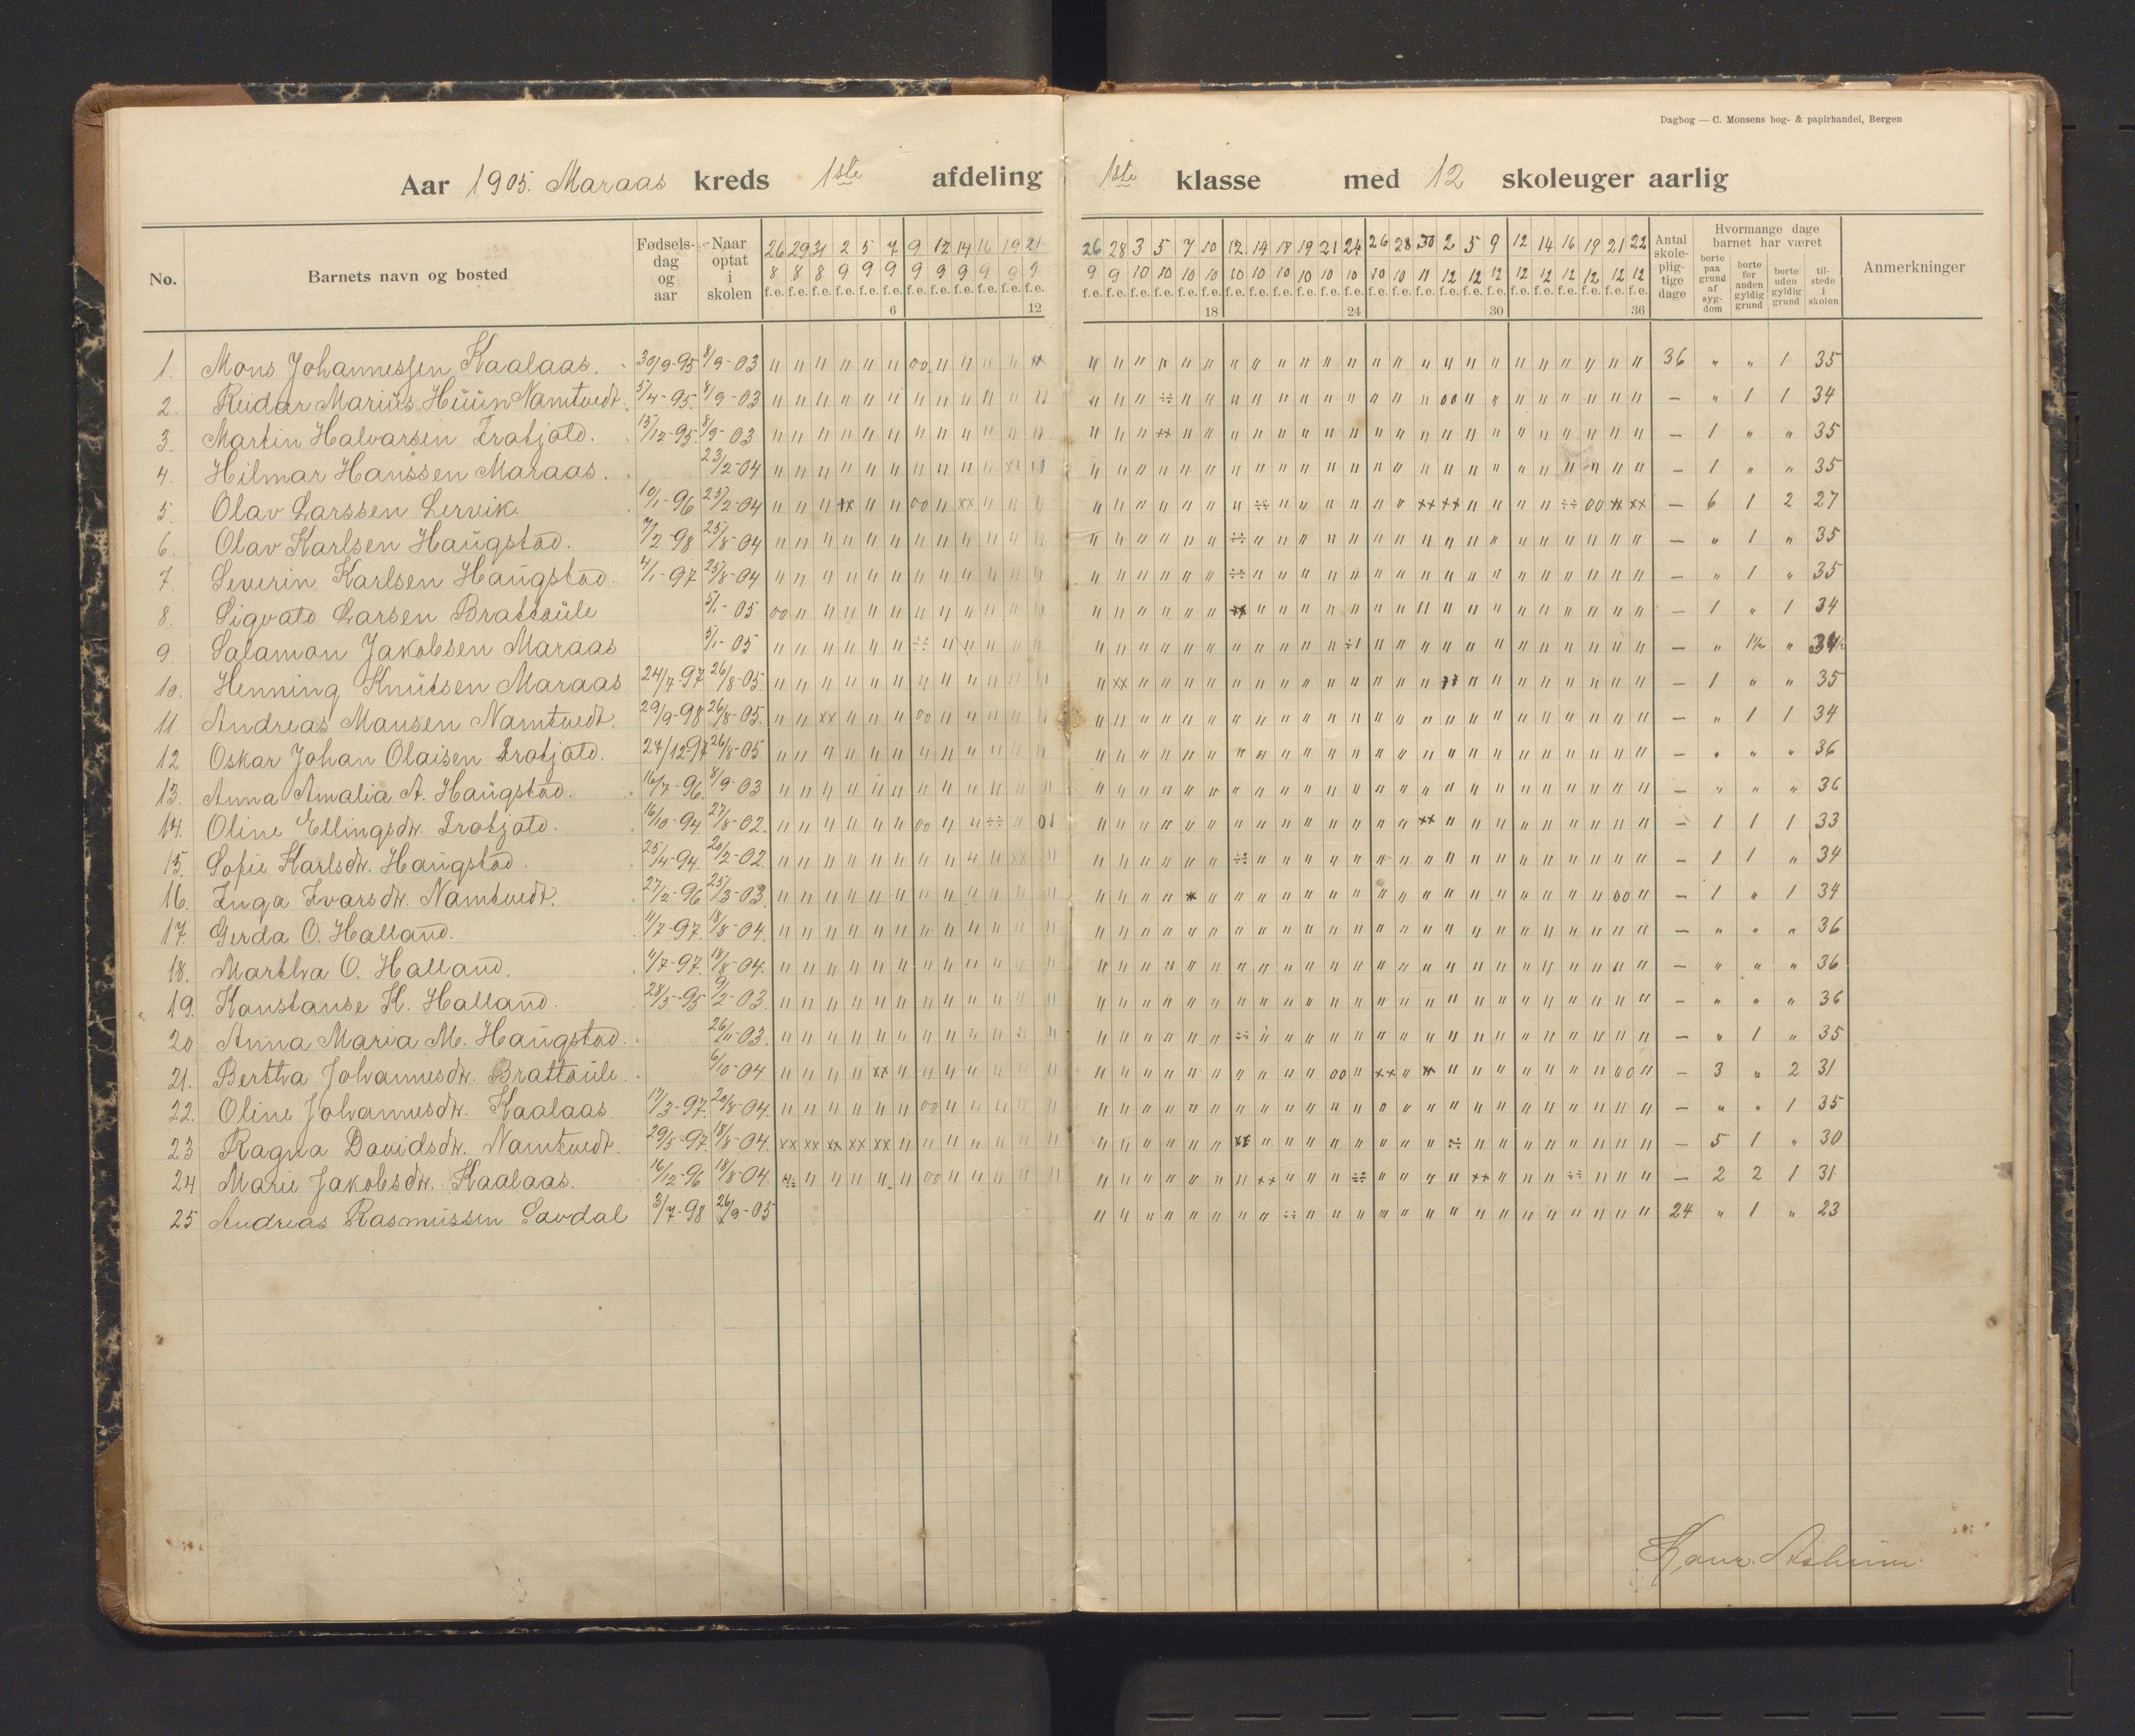 Dagbog — C. Monsens bog- & papirhandel, Bergen
Aar 1905. Maraas kreds 1ste afdeling 1ste klasse med 12 skoleuger aarlig
No. Barnets navn og bosted Fødselsdag og aar Naar optat i skolen Antal skolepligtige dage Hvormange dage barnet har været borte paa grund af sygdom borte for anden gyldig grund borte uden gyldig grund tilstede i skolen Anmerkninger
26 29 31 2 5 7 9 12 14 16 19 21 26 28 3 5 7 10 12 14 18 19 21 24 26 28 30 2 5 9 12 14 16 19 21 22
8 8 8 9 9 9 9 9 9 9 9 9 9 9 10 10 10 10 10 10 10 10 10 10 10 10 11 12 12 12 12 12 12 12 12 12
f.e. f.e. f.e. f.e. f.e. f.e. f.e. f.e. f.e. f.e. f.e. f.e. f.e. f.e. f.e. f.e. f.e. f.e. f.e. f.e. f.e. f.e. f.e. f.e. f.e. f.e. f.e. f.e. f.e. f.e. f.e. f.e. f.e. f.e. f.e. f.e.
6 12 18 24 30 36
1. Mons Johannessen Kaalaas. 30/9-95 8/9-03 36 " " 1 35
2. Reidar Marius Huun Namtvedt. 5/4-95. 8/9-03 — " 1 1 34
3. Martin Halvarsen 13/12-95. 8/9-03 — 1 " " 35
4. Hilmar Hanssen Maraas. 23/2-04 — 1 " " 35
5. Olav Larssen Lervik. 10/1-96 25/2-04 — 6 1 2 27
6. Olav Karlsen Haugstad. 7/2-98 25/8-04 — " 1 " 35
7. Severin Karlsen Haugstad. 4/1-97 25/8-04 — " 1 " 35
8. Sigvald Larsen Brattaule 5/1-05 — 1 " 1 34
9. Salamon Jakobsen Maraas 5/1-05 — " 1½ " 34½
10. Henning Knutsen Maraas 24/7-97 26/8-05. — 1 " " 35
11. Andreas Mansen Namtvedt. 29/9-98 26/8-05. — " 1 1 34
12 Oskar Johan Olaisen 27/12-97 26/8-05 — " " " 36
13. Anna Amalia A. Haugstad. 16/7-96. 8/9-03 — " " " 36
14. Oline Ellingsdtr. 16/10-94 27/8-02. — 1 1 1 33
15. Sofie Karlsdtr. Haugstad. 25/4-94. 20/2-02 — 1 1 " 34
16. Inga Ivarsdtr. Namtvedt. 27/2-96 25/3-03. — 1 " 1 34
17. Gerda O. Halland. 11/7-97. 18/8-04. — " " " 36
18. Martha O. Halland. 11/7-97. 18/8-04. — " " " 36
19. Konstanse K. Halland. 28/5-95 9/2-03. — " " " 36
20 Anna Maria M. Haugstad. 26/11-03. — " 1 " 35
21. Bertha Johannesdtr. Brattaule. 6/10-04 — 3 " 2 31
22. Oline Johannesdtr. Kaalaas. 17/3-97. 20/8-04. — " " 1 35
23 Ragna Davidsdtr. Namtvedt. 29/5-97. 18/8-04. — 5 1 " 30
24 Marie Jakobsdtr. Kaalaas. 16/12-96 18/8-04. — 2 2 1 31
25 Andreas Rasmussen 3/7-98 26/9-05 24 " 1 " 23